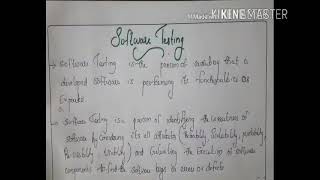 Made with KINEMASTER
Software Testing
→ Software Testing is the process of verifying that a
developed software is performing its functionalities as
Expected.
→ Software Testing is a process of identifying the correctness of
software by Considering its all attributes (Reliability, Scalability, Portability,
Re-usability, Usability) and Evaluating the Execution of software
components to find the software bugs or errors or defects